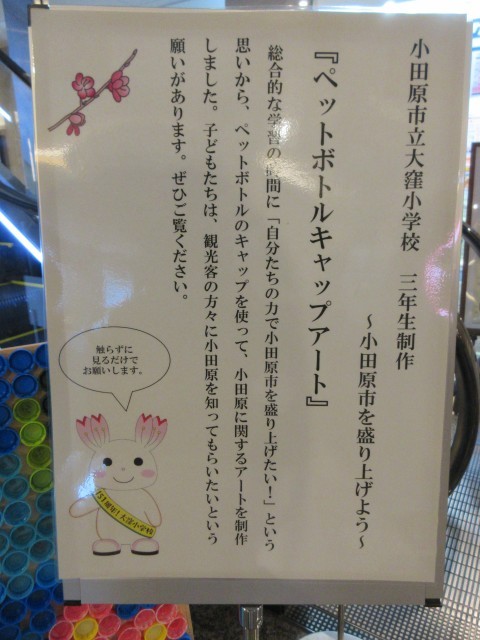 小田原市立大窪小学校　三年生制作
～小田原市を盛り上げよう～
『ペットボトルキャップアート』
総合的な学習の時間に「自分たちの力で小田原市を盛り上げたい！」という
思いから、ペットボトルのキャップを使って、小田原に関するアートを制作
しました。子どもたちは、観光客の方々に小田原を知ってもらいたいという
願いがあります。ぜひご覧ください。
触らずに
見るだけで
お願いします。
151周年！大窪小学校